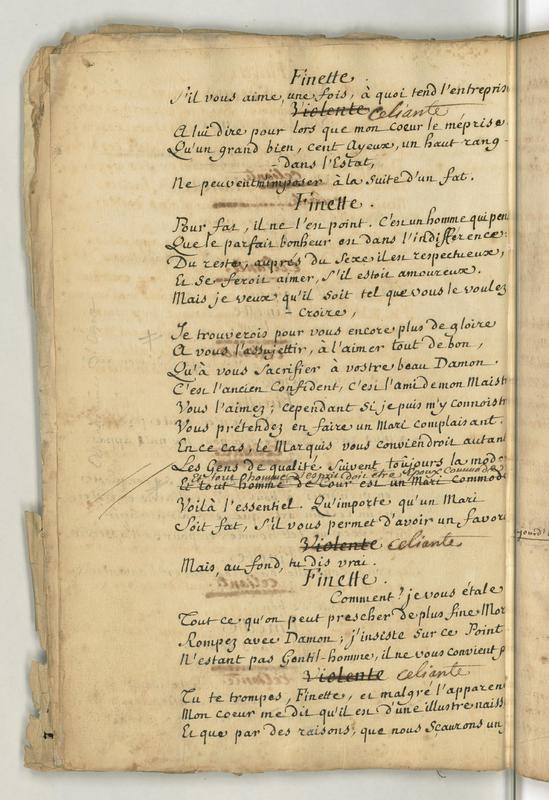 Finette.
S'il vous aime, une fois, à quoi tend l'entreprise
Violente celiante
A lui dire pour lors que mon coeur le méprise
Qu'un grand bien, cent Ayeux, un haut rang -
- dans l'Estat,
Ne peuvent m'imposer à la suite d'un fat.
Finette.
Pour fat, il ne l'est point. C'est un homme qui pen
Que le parfait bonheur est dans l'indifférence:
Du reste, auprès du Sexe il est respectueux,
Et se feroit aimer, s'il estoit amoureux.
Mais je veux qu'il soit tel que vous le voulez
- Croire,
Je trouverois pour vous encore plus de gloire
A vous l'assujettir, à l'aimer tout de bon,
Qu'à vous Sacrifier à vostre beau Damon.
C'est l'ancien Confident, c'est l'ami de mon Maist
Vous l'aimez; cependant si je puis m'y connoist
Vous prétendez en faire un Mari complaisant.
En ce cas, le Marquis vous conviendroit autan
Les Gens de qualité suivent toujours la mode
Et tout homme d'esprit doit être époux commode
Et tout homme de Cour est un Mari commod
Voilà l'essentiel. Qu'importe qu'un Mari
Soit fat, s'il vous permet d'avoir un favori
Violente celiante
Mais, au fond, tu dis vrai.
Finette.
Comment? je vous étale
Tout ce qu'on peut prescher de plus fine Mor
Rompez avec Damon; j'insiste sur ce Point
N'estant pas Gentil-homme, il ne vous convient p
Violente celiante
Tu te trompes, Finette, et malgré l'apparen
Mon coeur me dit qu'il est d'une illustre naiss
Et que par des raisons, que nous Sçaurons un j